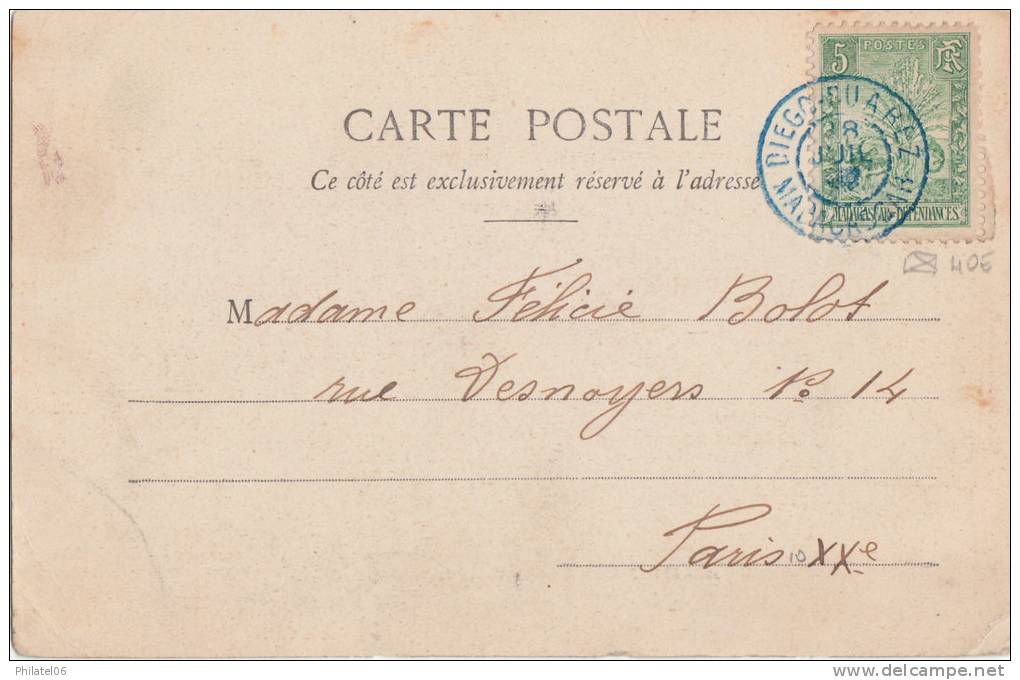 5 POSTES RF
DIEGO-SUAREZ
8
JUIL
MADAGASCAR
MADAGASCAR-DÉPENDANCES
CARTE POSTALE
Ce côté est exclusivement réservé à l'adresse
40E
Madame Félicie Bolot
rue Desnoyers No 14
Paris XXe
Philatel06
www.delcampe.net